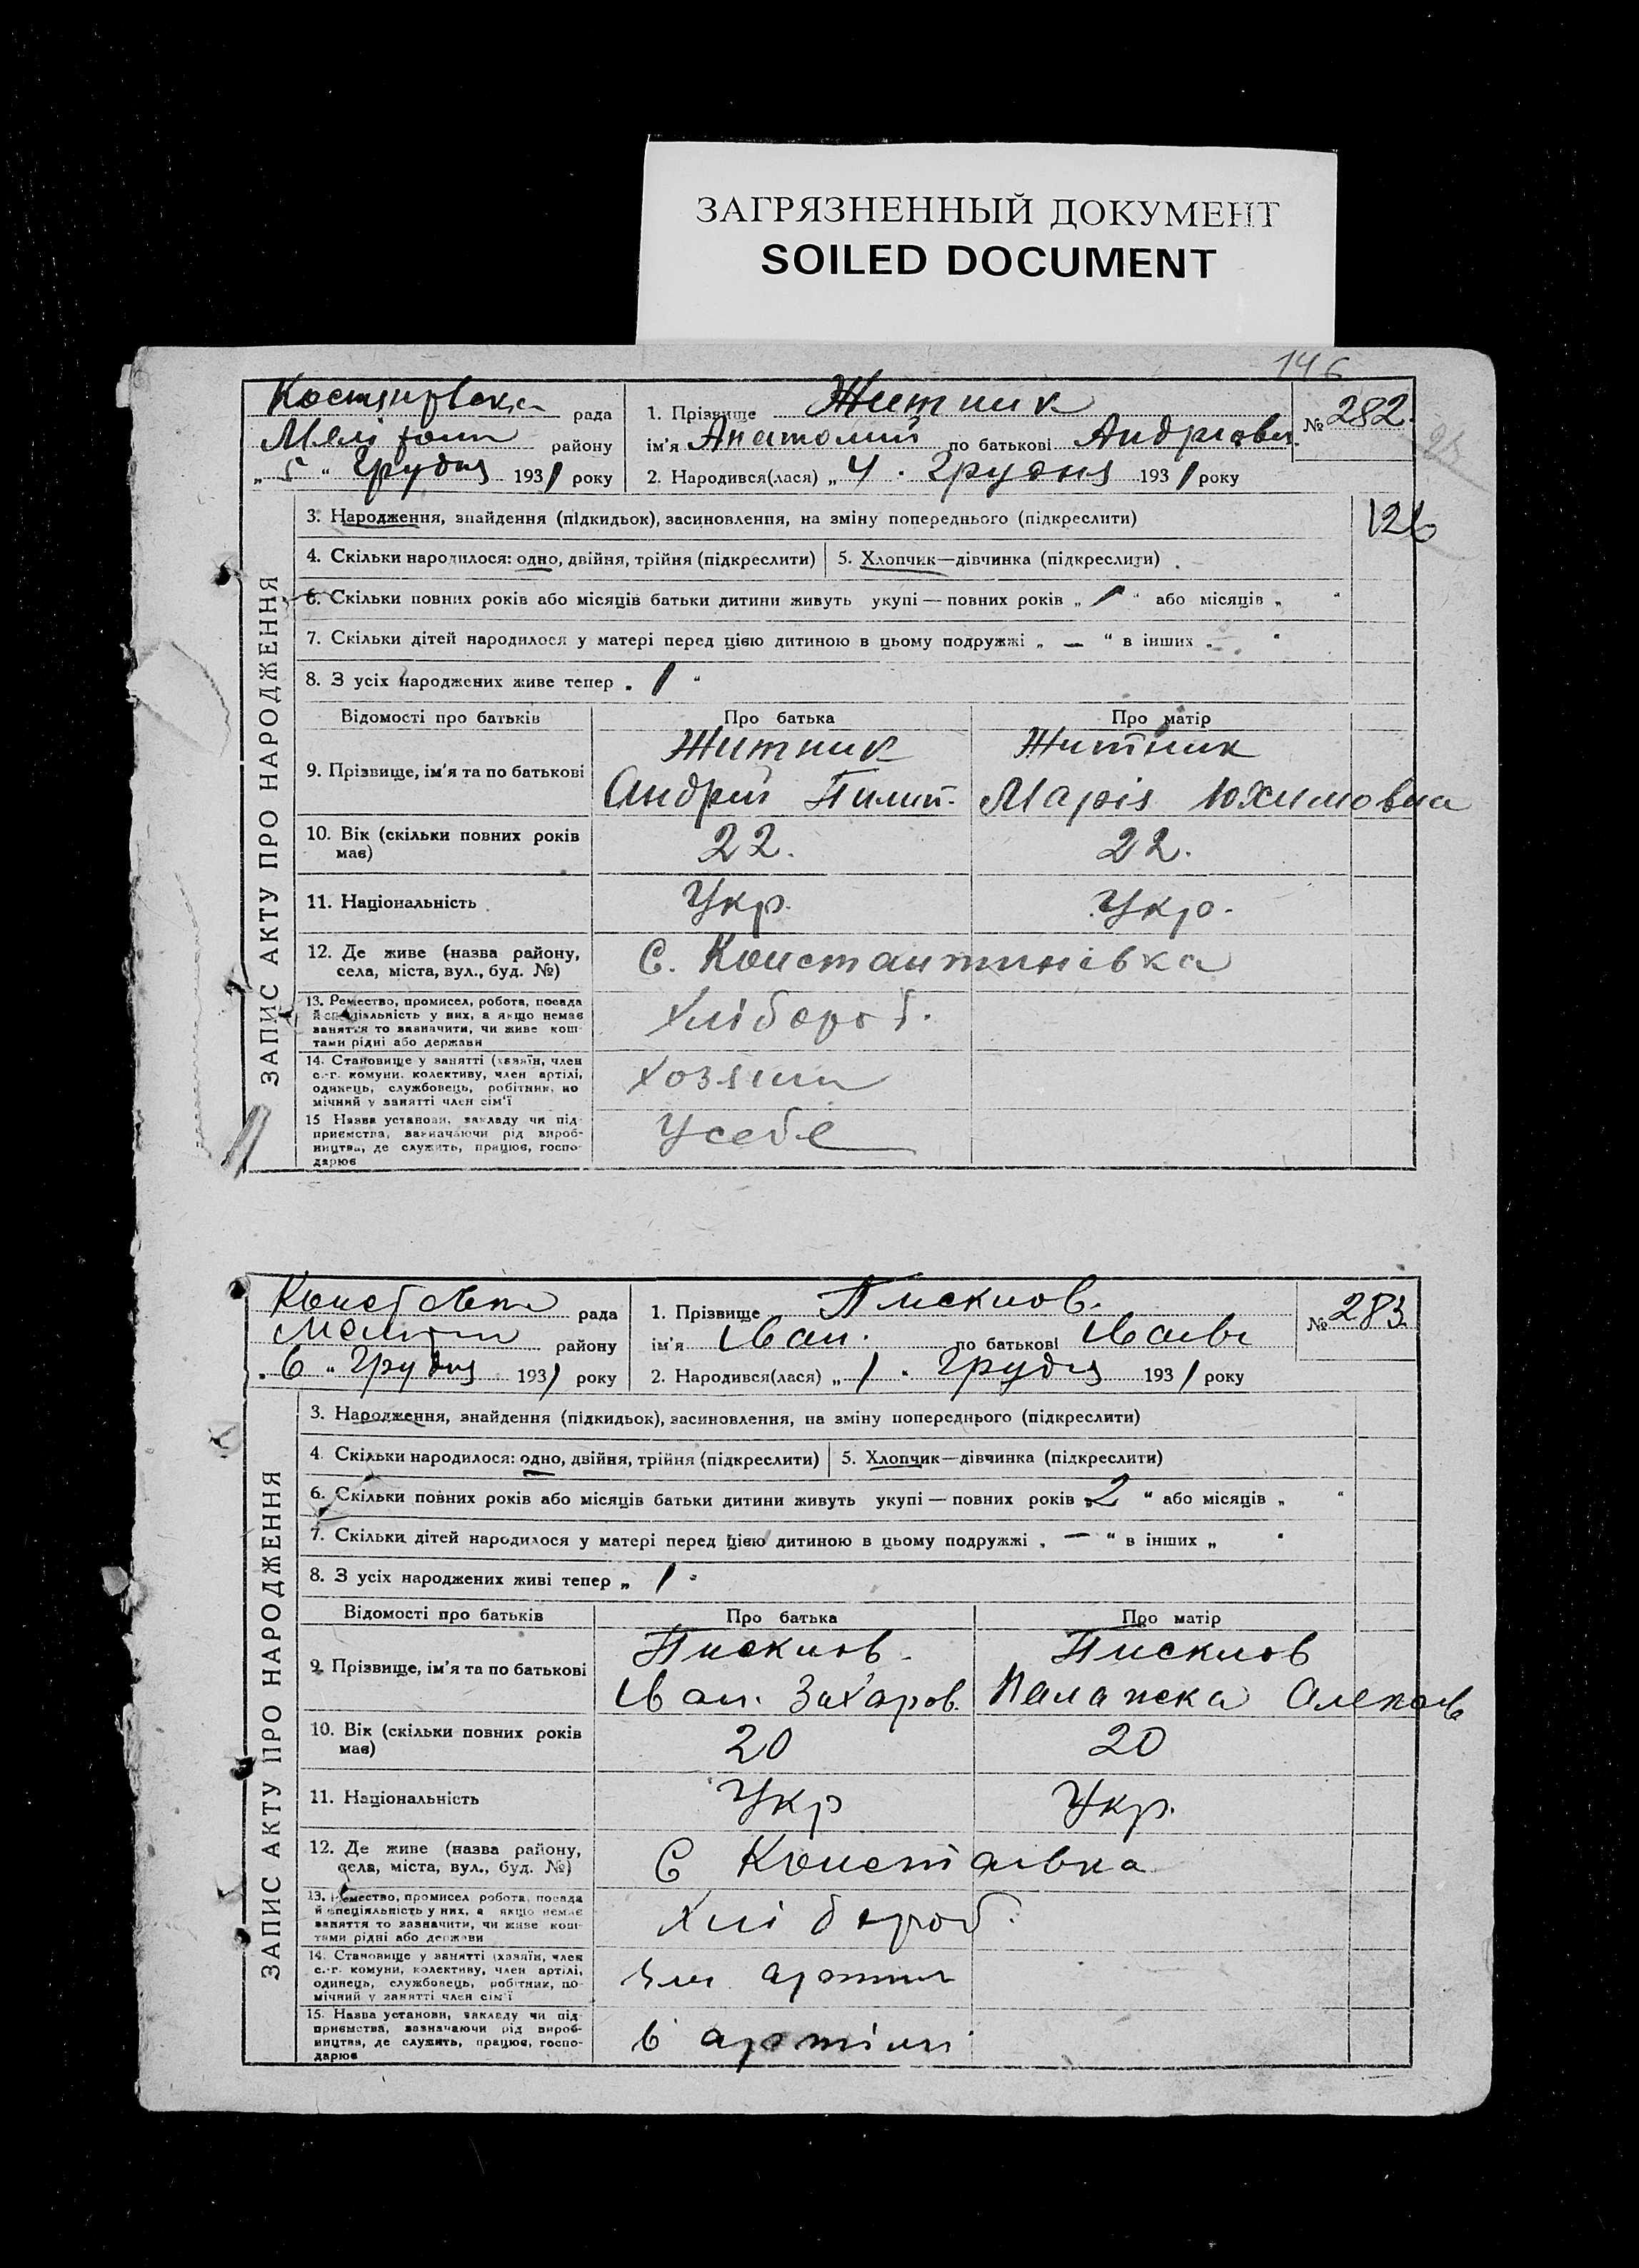 ЗАГРЯЗНЕННЫЙ ДОКУМЕНТ
SOILED DOCUMENT
146
ЗАПИС АКТУ ПРО НАРОДЖЕННЯ
рада
району
„ 5 “ Грудня 1931 року
1. Прізвище Житник
ім'я Анатолий по батькові Андріеви.
2. Народився(лася) „ 4 . Грудня 1931 року
№ 282.
3. Народження, знайдення (підкидьок), засиновлення, на зміну попереднього (підкреслити)
126
4. Скільки народилося: одно, двійня, трійня (підкреслити)
5. Хлопчик—дівчинка (підкреслити)
6. Скільки повних років або місяців батьки дитини живуть укупі — повних років „ 1 “ або місяців „ “
7. Скільки дітей народилося у матері перед цією дитиною в цьому подружжі „ — “ в інших
8. З усіх народжених живе тепер „ 1 “
Відомості про батьків
Про батька
Про матір
9. Прізвище, ім'я та по батькові
Житник
Андрий Пилип.
Житник
Марія Юхимовна
10. Вік (скільки повних років
має)
22.
22.
11. Національність
Укр.
Укр.
12. Де живе (назва району,
села, міста, вул., буд. №)
С. Константинівка
13. Ремество, промисел, робота, посада
й спеціальність у них, а якщо немає
заняття то зазначити, чи живе кош-
тами рідні або держави
Хлібороб.
14. Становище у занятті (хазяїн, член
с.-г. комуни, колективу, член артілі,
одинець, службовець, робітник, по
мічний у занятті член сім'ї
хозяин
15 Назва установи, закладу чи під-
приємства, зазначаючи рід вироб-
ництва, де служить, працює, госпо-
дарює
У себе
ЗАПИС АКТУ ПРО НАРОДЖЕННЯ
рада
району
„ 6 “ Грудня 1931 року
1. Прізвище
ім'я Іван. по батькові
2. Народився(лася) „ 1 “ Грудня 1931 року
№ 283
3. Народження, знайдення (підкидьок), засиновлення, на зміну попереднього (підкреслити)
4. Скільки народилося: одно, двійня, трійня (підкреслити)
5. Хлопчик—дівчинка (підкреслити)
6. Скільки повних років або місяців батьки дитини живуть укупі — повних років „ 2 “ або місяців „ “
7. Скільки дітей народилося у матері перед цією дитиною в цьому подружжі „ — “ в інших „ “
8. З усіх народжених живі тепер „ 1 “
Відомості про батьків
Про батька
Про матір
9. Прізвище, ім'я та по батькові
Іван. Захаров.
10. Вік (скільки повних років
має)
20
20
11. Національність
Укр
Укр.
12. Де живе (назва району,
села, міста, вул., буд. №)
С
13. Ремество, промисел робота, посада
й спеціяльність у них, а якщо немає
заняття то зазначити, чи живе кош-
тами рідні або держави
Хлібороб.
14. Становище у занятті (хазяїн, член
с.-г. комуни, колективу, член артілі,
одинець, службовець, робітник, по-
мічний у занятті член сім'ї
15. Назва установи, закладу чи під-
приємства, зазначаючи рід вироб-
ництва, де служить, працює, госпо-
дарює
в артілі